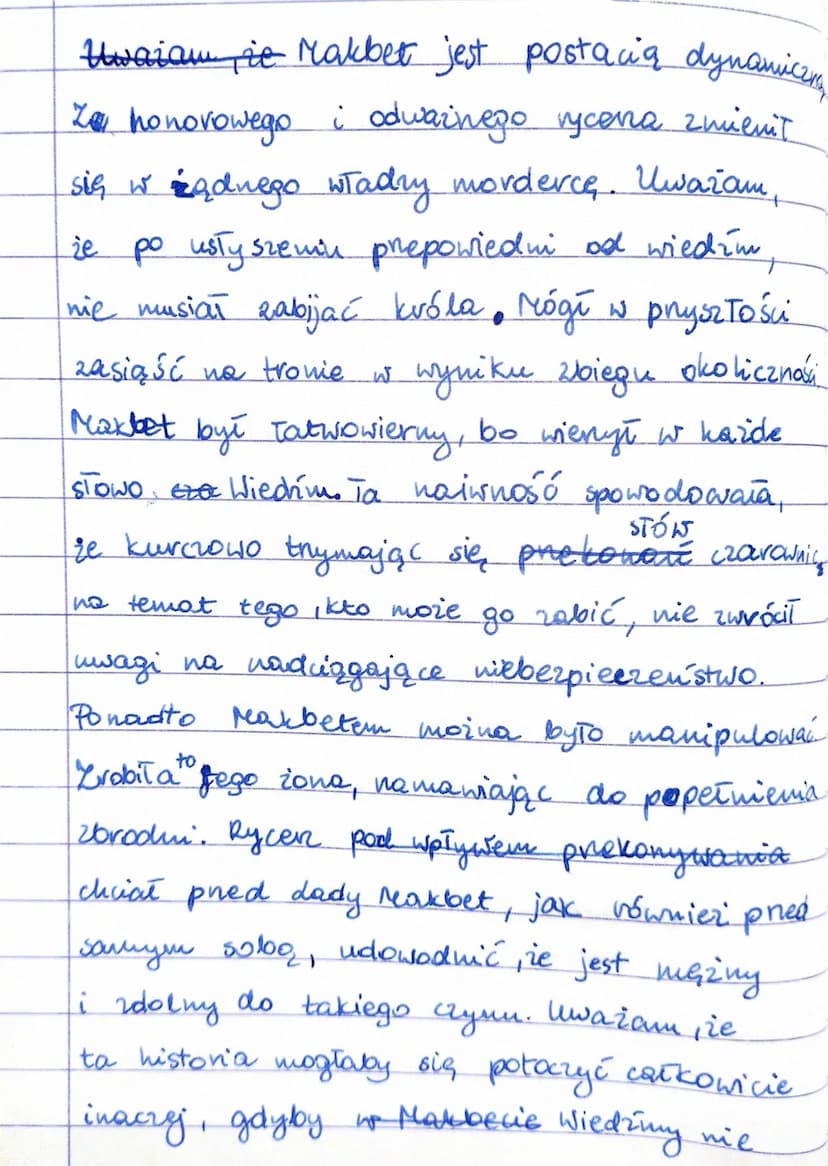 Uważam, że Makbet jest postacią dynamiczną
Z honorowego i odważnego rycerza zmienił
się w żądnego władzy mordercę. Uważam,
że po usłyszeniu przepowiedni od wiedźm,
nie musiał zabijać króla. Mógł w przyszłości
zasiąść na tronie w wyniku zbiegu okoliczności
Makbet był łatwowierny, bo wierzył w każde
słowo. cza Wiedźm. Ta naiwność spowodowała,
słów
że kurczowo trzymając się przekonań czarownic
na temat tego, kto może go zabić, nie zwrócił
uwagi na nadciągające niebezpieczeństwo.
Ponadto Makbetem można było manipulować.
Zrobiła to jego żona, namawiając do popełnienia
zbrodni. Rycerz pod wpływem przekonywania
chciał przed lady Makbet, jak również przed
samym sobą, udowodnić, że jest mężny
i zdolny do takiego czynu. Uważam, że
ta historia mogłaby się potoczyć całkowicie
inaczej, gdyby w Makbecie Wiedźmy nie